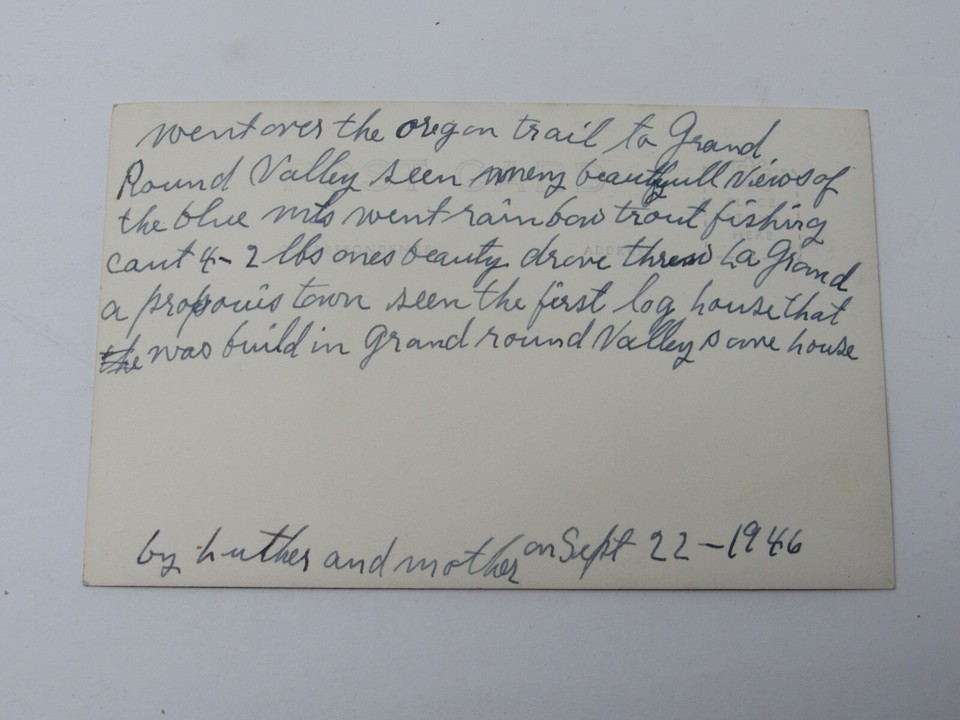 went over the oregon trail to Grand
Round Valley seen meny beautyfull Views of
the blue mts went rainbow trout fishing
caut 4 - 2 lbs ones beauty drove threw La Grand
a propouis town seen the first log house that
the was build in Grand round Valley some house
by Luther and mother on Sept 22 - 1946
POST CARD
PLACE
HERE
CORRESPONDENCE
ADDRESS